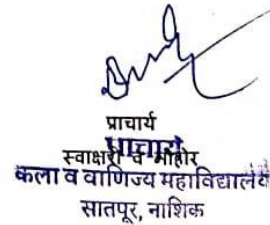 प्राचार्य
प्राचार्य
स्वाक्षरी व मोहोर
कला व वाणिज्य महाविद्यालय
सातपूर, नाशिक